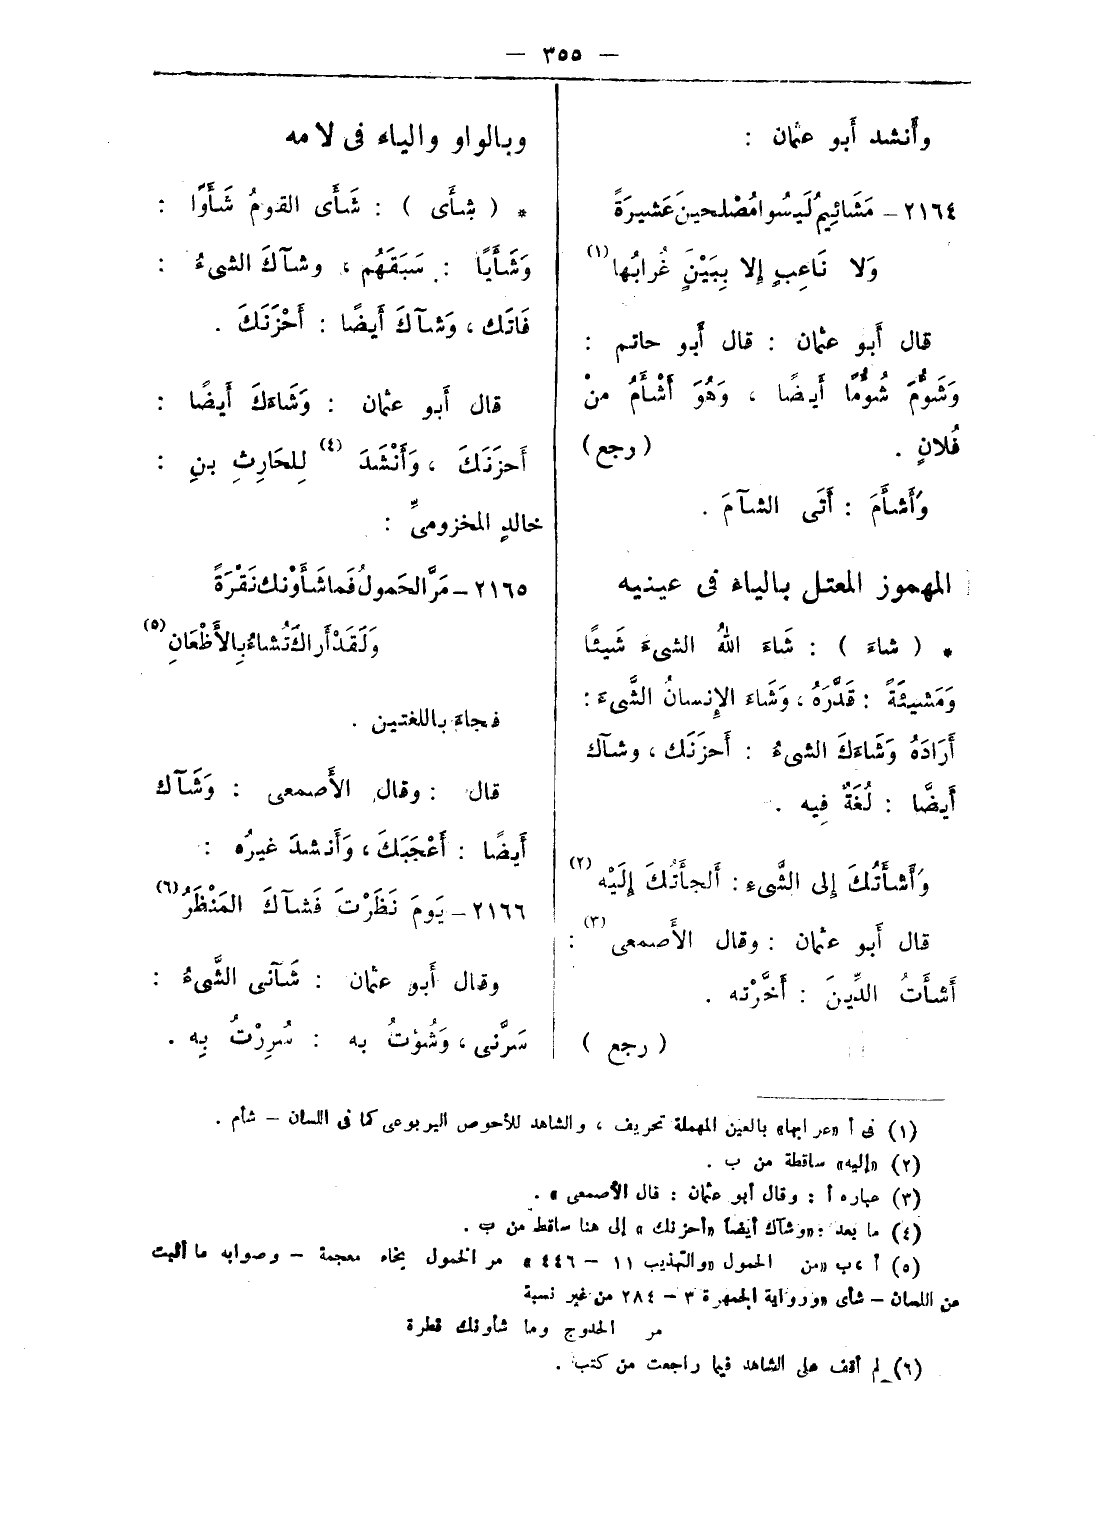 — ٣٥٥ —
وأنشد أبو عثمان :
٢١٦٤ – مَشَائِيمُ لَيسُوا مُصْلحينَ عَشيرَةً
وَلا نَاعِبٍ إلا بِبَيْنٍ غُرابُها (١)
قال أَبو عثمان : قال أَبو حاتم :
وَشَؤُمَ شُؤْمًا أَيضًا ، وَهُوَ أَشْأَمُ منْ
فُلانٍ . (رجع)
وَأَشأَمَ : أَتَى الشآمَ .
المهموز المعتل بالياء فى عينيه
* ( شاءَ ) : شَاءَ اللهُ الشىءَ شَيئًا
وَمَشيئَةً : قَدَّرَهُ ، وَشَاءَ الإِنسانُ الشَّىءَ :
أَرَادَهُ وَشَاءَكَ الشىءُ : أَحزَنَك ، وشآك
أَيضًا : لُغَةٌ فِيه .
وَأَشأتُكَ إلى الشَّىءِ : أَلجأتُكَ إِلَيْه (٢)
قال أَبو عثمان : وقال الأَصمعى (٣) :
أَشأَتُ الدِّينَ : أَخَّرْته .
(رجع )
وبالواو والياء فى لامه
* ( شأَى ) : شَأَى القومُ شَأْوًا :
وَشَأْيًا : سَبَقَهُم ، وشآكَ الشىءُ :
فَاتَك ، وَشآكَ أَيضًا : أَحْزَنَكَ .
قال أَبو عثمان : وَشَاءَكَ أَيضًا :
أَحزَنَكَ ، وَأَنْشَدَ (٤) لِلحَارِثِ بنِ :
خالدٍ المخزومىِّ :
٢١٦٥ – مَرَّ الحَمولُ فَما شَأَوْنك نَقْرَةً
وَلَقَدْ أَراكَ تُشاءُ بِالأَظْعَانِ (٥)
فجاءَ باللغتين .
قال : وقال الأَصمعى : وَشَآك
أَيضًا : أَعْجَبَكَ ، وَأَنشدَ غيرُه :
٢١٦٦ – يَومَ نَظَرْتَ فَشآكَ المَنْظَرُ (٦)
وقال أَبو عثمان : شَآنى الشَّىءُ :
سَرَّنى ، وَشُؤتُ به : سُرِرْتُ بِه .
(١) فى أ «عرابها» بالعين المهملة تحريف ، والشاهد للأحوص اليربوعى كما فى اللسان – شأم .
(٢) «إليه» ساقطة من ب .
(٣) عباره أ : وقال أبو عثمان : قال الأصمعى » .
(٤) ما بعد : «وشآك أيضاً «أحزنك » إلى هنا ساقط من ب .
(٥) أ ، ب «من الحمول «والتهذيب ١١ – ٤٤٦ » مر الخمول بخاء معجمة – وصوابه ما أثبت
من اللسان – شأى «ورواية الجمهرة ٣ – ٢٨٤ من غير نسبة
مر الحدوج وما شأونك قطرة
(٦) لم أقف على الشاهد فيما راجعت من كتب .